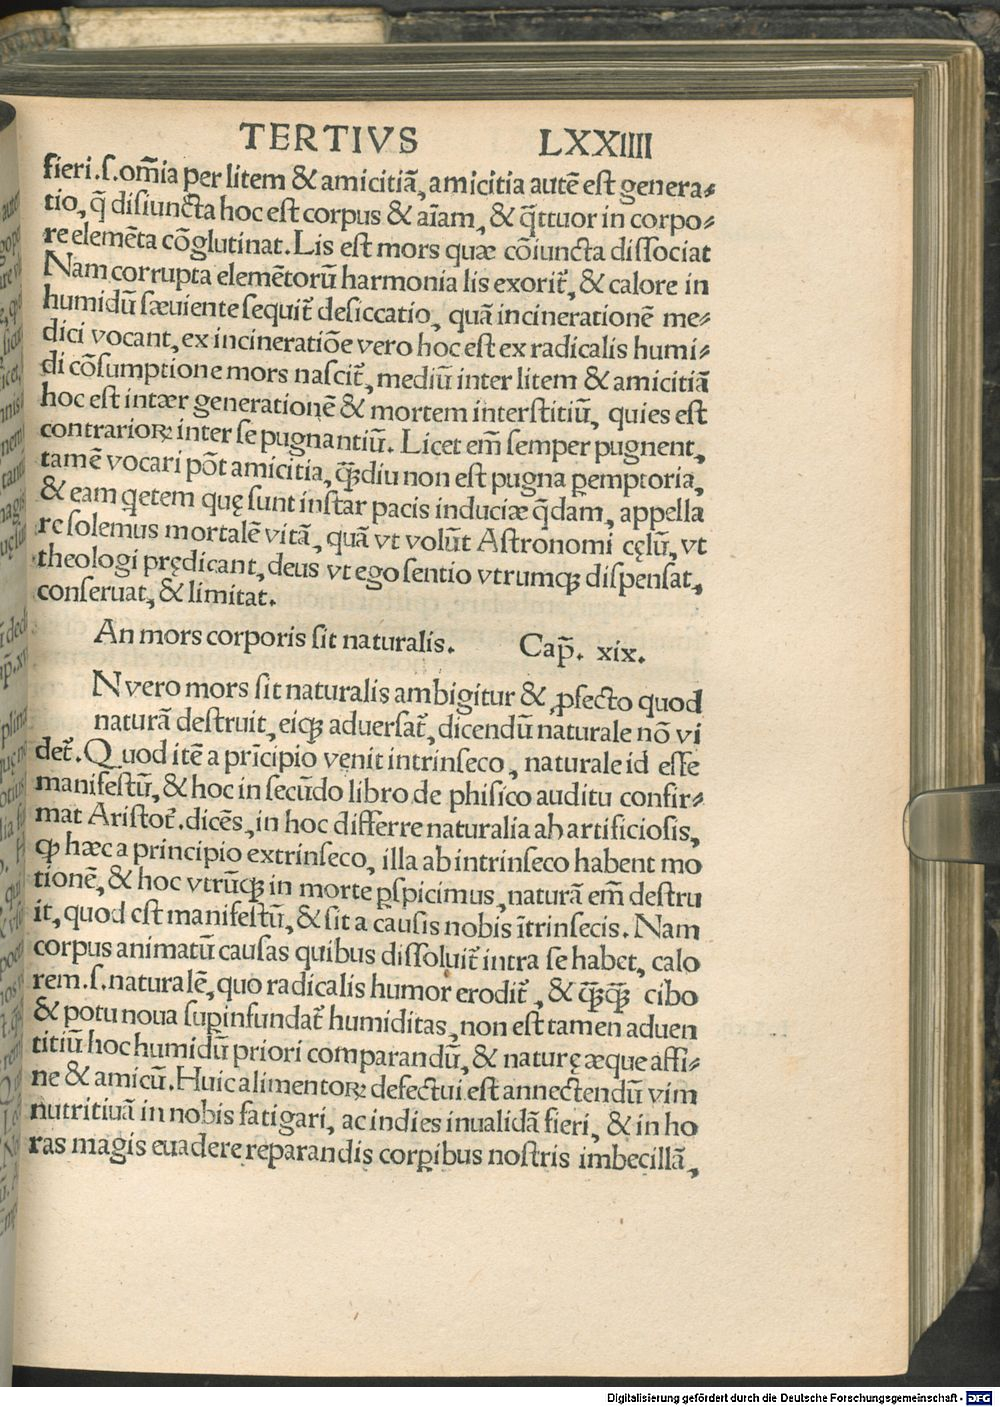 TERTIVS LXXIIII
fieri.ſ.om̄ia per litem & amicitiā, amicitia autē eſt genera⸗
tio, q̄ diſiuncta hoc eſt corpus & aīam, & q̄ttuor in corpo⸗
re elemēta cōglutinat. Lis eſt mors quæ cōiuncta diſſociat
Nam corrupta elemētorū harmonia lis exorit᷑, & calore in
humidū ſæuiente ſequit᷑ deſiccatio, quā incinerationē me⸗
dici vocant, ex incineratiōe vero hoc eſt ex radicalis humi⸗
di cōſumptione mors naſcit᷑, mediū inter litem & amicitiā
hoc eſt intær generationē & mortem interſtitiū, quies eſt
contrarioꝝ inter ſe pugnantiū. Licet em̄ ſemper pugnent,
tamē vocari pōt amicitia, ꝙ̄diu non eſt pugna ꝑemptoria,
& eam qetem quę ſunt inſtar pacis induciæ q̄dam, appella
re ſolemus mortalē vitā, quā vt volūt Aſtronomi cęlū, vt
theologi prędicant, deus vt ego ſentio vtrumqꝫ diſpenſat,
conſeruat, & limitat.
An mors corporis ſit naturalis. Cap̄. xix.
N vero mors ſit naturalis ambigitur & ꝓfecto quod
naturā deſtruit, eiqꝫ aduerſat᷑, dicendū naturale nō vi
det᷑. Quod itē a prīcipio venit intrinſeco, naturale id eſſe
manifeſtū, & hoc in ſecūdo libro de phiſico auditu confir⸗
mat Ariſtot᷑. dicēs, in hoc differre naturalia ab artificioſis,
ꝙ hæc a principio extrinſeco, illa ab intrinſeco habent mo
tionē, & hoc vtrūqꝫ in morte ꝑſpicimus, naturā em̄ deſtru
it, quod eſt manifeſtū, & ſit a cauſis nobis ītrinſecis. Nam
corpus animatū cauſas quibus diſſoluit᷑ intra ſe habet, calo
rem.ſ.naturalē, quo radicalis humor erodit᷑, & ꝙ̄ꝙ̄ cibo
& potu noua ſuꝑinfundat᷑ humiditas, non eſt tamen aduen
titiū hoc humidū priori comparandū, & naturę æque affi⸗
ne & amicū. Huic alimentoꝝ defectui eſt annectendū vim
nutritiuā in nobis fatigari, ac indies inualidā fieri, & in ho
ras magis euadere reparandis corꝑibus noſtris imbecillā,
Digitalisierung gefördert durch die Deutsche Forschungsgemeinschaft - DFG